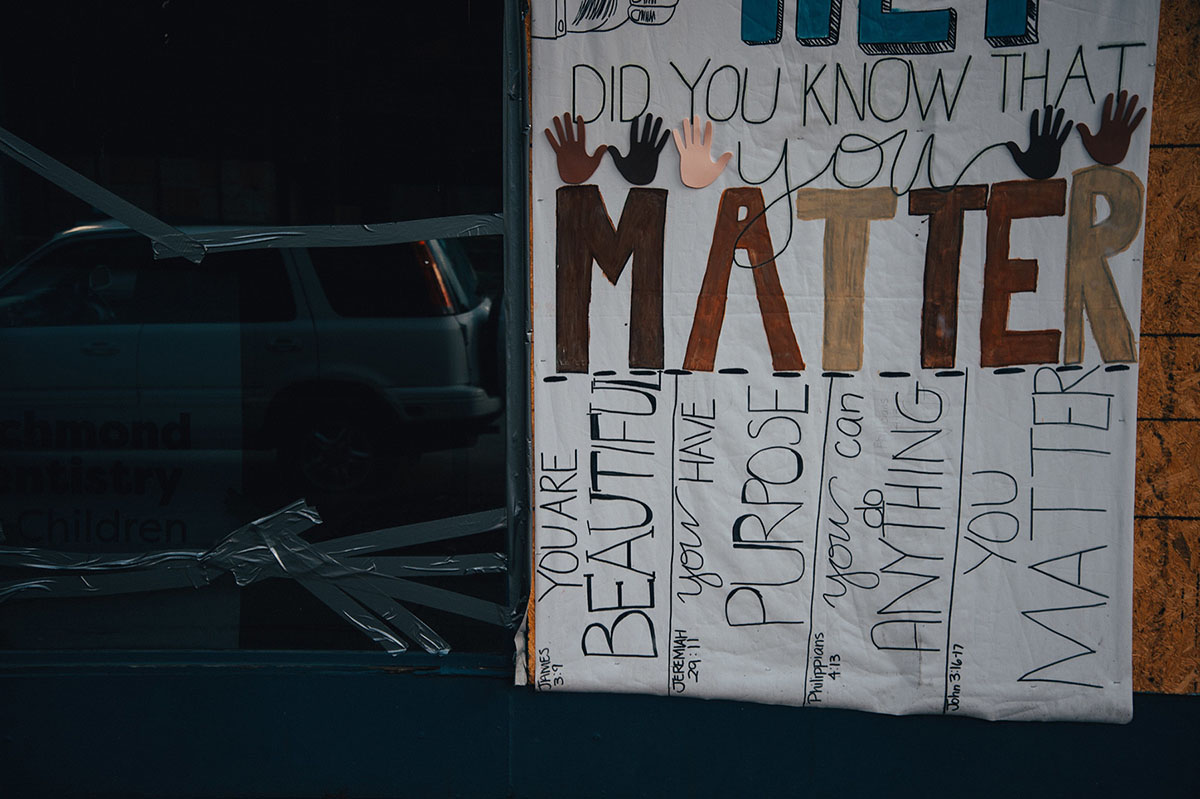 HEY
DID YOU KNOW THAT
you
MATTER
YOU ARE
BEAUTIFUL
JAMES
3:9
you HAVE
PURPOSE
JEREMIAH
29:11
you can
do
ANYTHING
Philippians
4:13
YOU
MATTER
John 3:16-17
chmond
entistry
Children